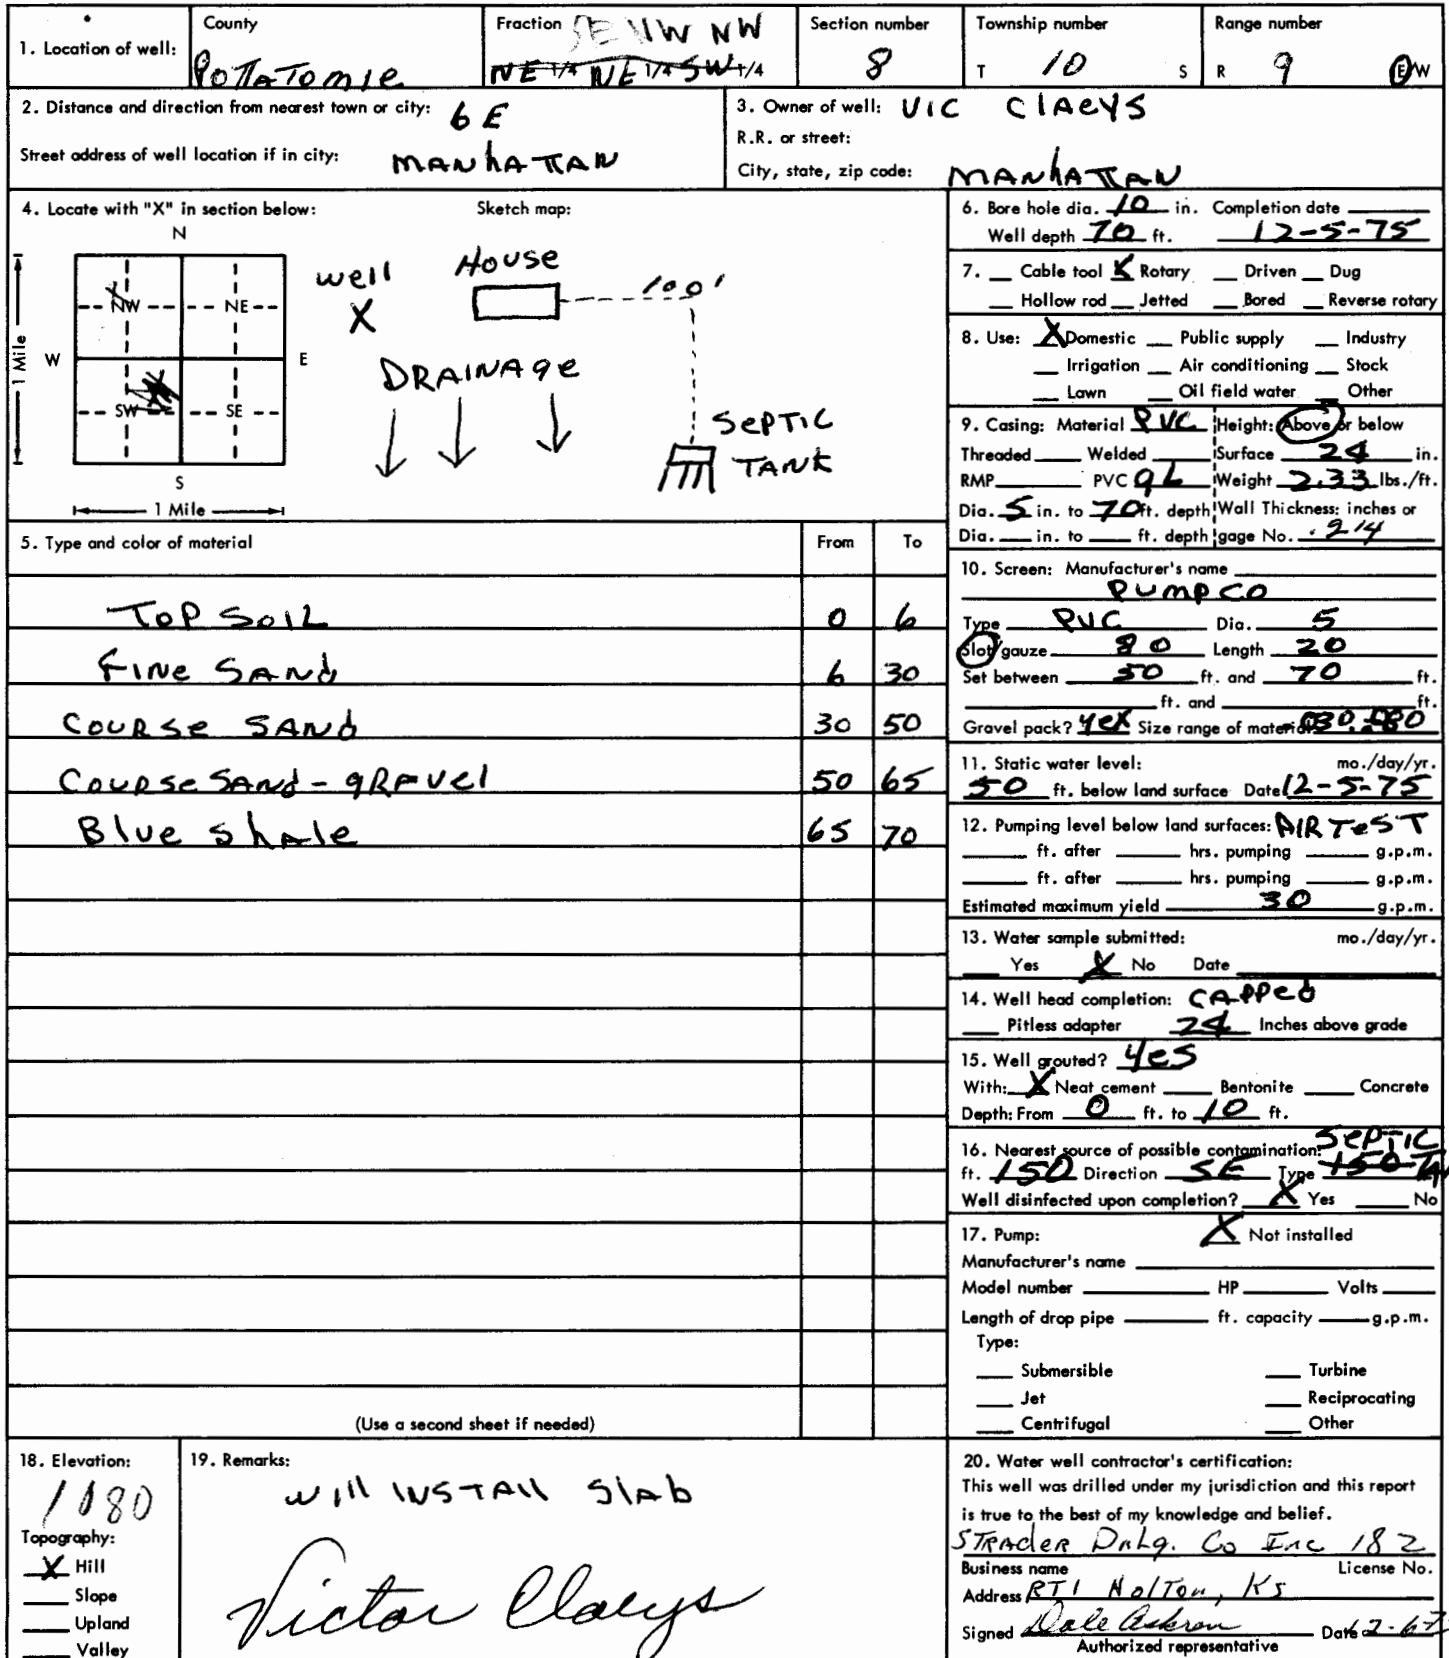 1. Location of well: County Pottatomie Fraction SE NW NW NE 1/4 NE 1/4 SW 1/4 Section number 8 Township number T 10 S Range number R 9 E/W
2. Distance and direction from nearest town or city: 6 E
Street address of well location if in city: MANhATTAN
3. Owner of well: VIC ClAeyS
R.R. or street:
City, state, zip code: MANhATTAN
4. Locate with "X" in section below:
N
NW NE
W E
SW SE
S
1 Mile
1 Mile
Sketch map:
well House 100'
X
DRAINAge
SePTIC
TANK
5. Type and color of material From To
TOP SOIL 0 6
FINe SANd 6 30
COURSe SANd 30 50
COURSe SANd - gRAVel 50 65
Blue ShAle 65 70
(Use a second sheet if needed)
6. Bore hole dia. 10 in. Completion date
Well depth 70 ft. 12-5-75
7. Cable tool X Rotary Driven Dug
Hollow rod Jetted Bored Reverse rotary
8. Use: X Domestic Public supply Industry
Irrigation Air conditioning Stock
Lawn Oil field water Other
9. Casing: Material PVC Height: Above or below
Threaded Welded Surface 24 in.
RMP PVC gL Weight 2.33 lbs./ft.
Dia. 5 in. to 70 ft. depth Wall Thickness: inches or
Dia. in. to ft. depth gage No. .214
10. Screen: Manufacturer's name
PUMPCO
Type PVC Dia. 5
Slot/gauze 80 Length 20
Set between 50 ft. and 70 ft.
ft. and ft.
Gravel pack? yes Size range of material
11. Static water level: mo./day/yr.
50 ft. below land surface Date 12-5-75
12. Pumping level below land surfaces: AIR TeST
ft. after hrs. pumping g.p.m.
ft. after hrs. pumping g.p.m.
Estimated maximum yield 30 g.p.m.
13. Water sample submitted: mo./day/yr.
Yes X No Date
14. Well head completion: CAPPed
Pitless adapter 24 Inches above grade
15. Well grouted? yes
With: X Neat cement Bentonite Concrete
Depth: From 0 ft. to 10 ft.
16. Nearest source of possible contamination: SePTIC
ft. 150 Direction SE Type 150
Well disinfected upon completion? X Yes No
17. Pump: X Not installed
Manufacturer's name
Model number HP Volts
Length of drop pipe ft. capacity g.p.m.
Type:
Submersible Turbine
Jet Reciprocating
Centrifugal Other
18. Elevation:
1080
Topography:
X Hill
Slope
Upland
Valley
19. Remarks:
will INSTAll SlAb
Victor Claeys
20. Water well contractor's certification:
This well was drilled under my jurisdiction and this report
is true to the best of my knowledge and belief.
STRAder Drlg. Co Inc 182
Business name License No.
Address RT1 Holton, Ks
Signed Dale Date
Authorized representative